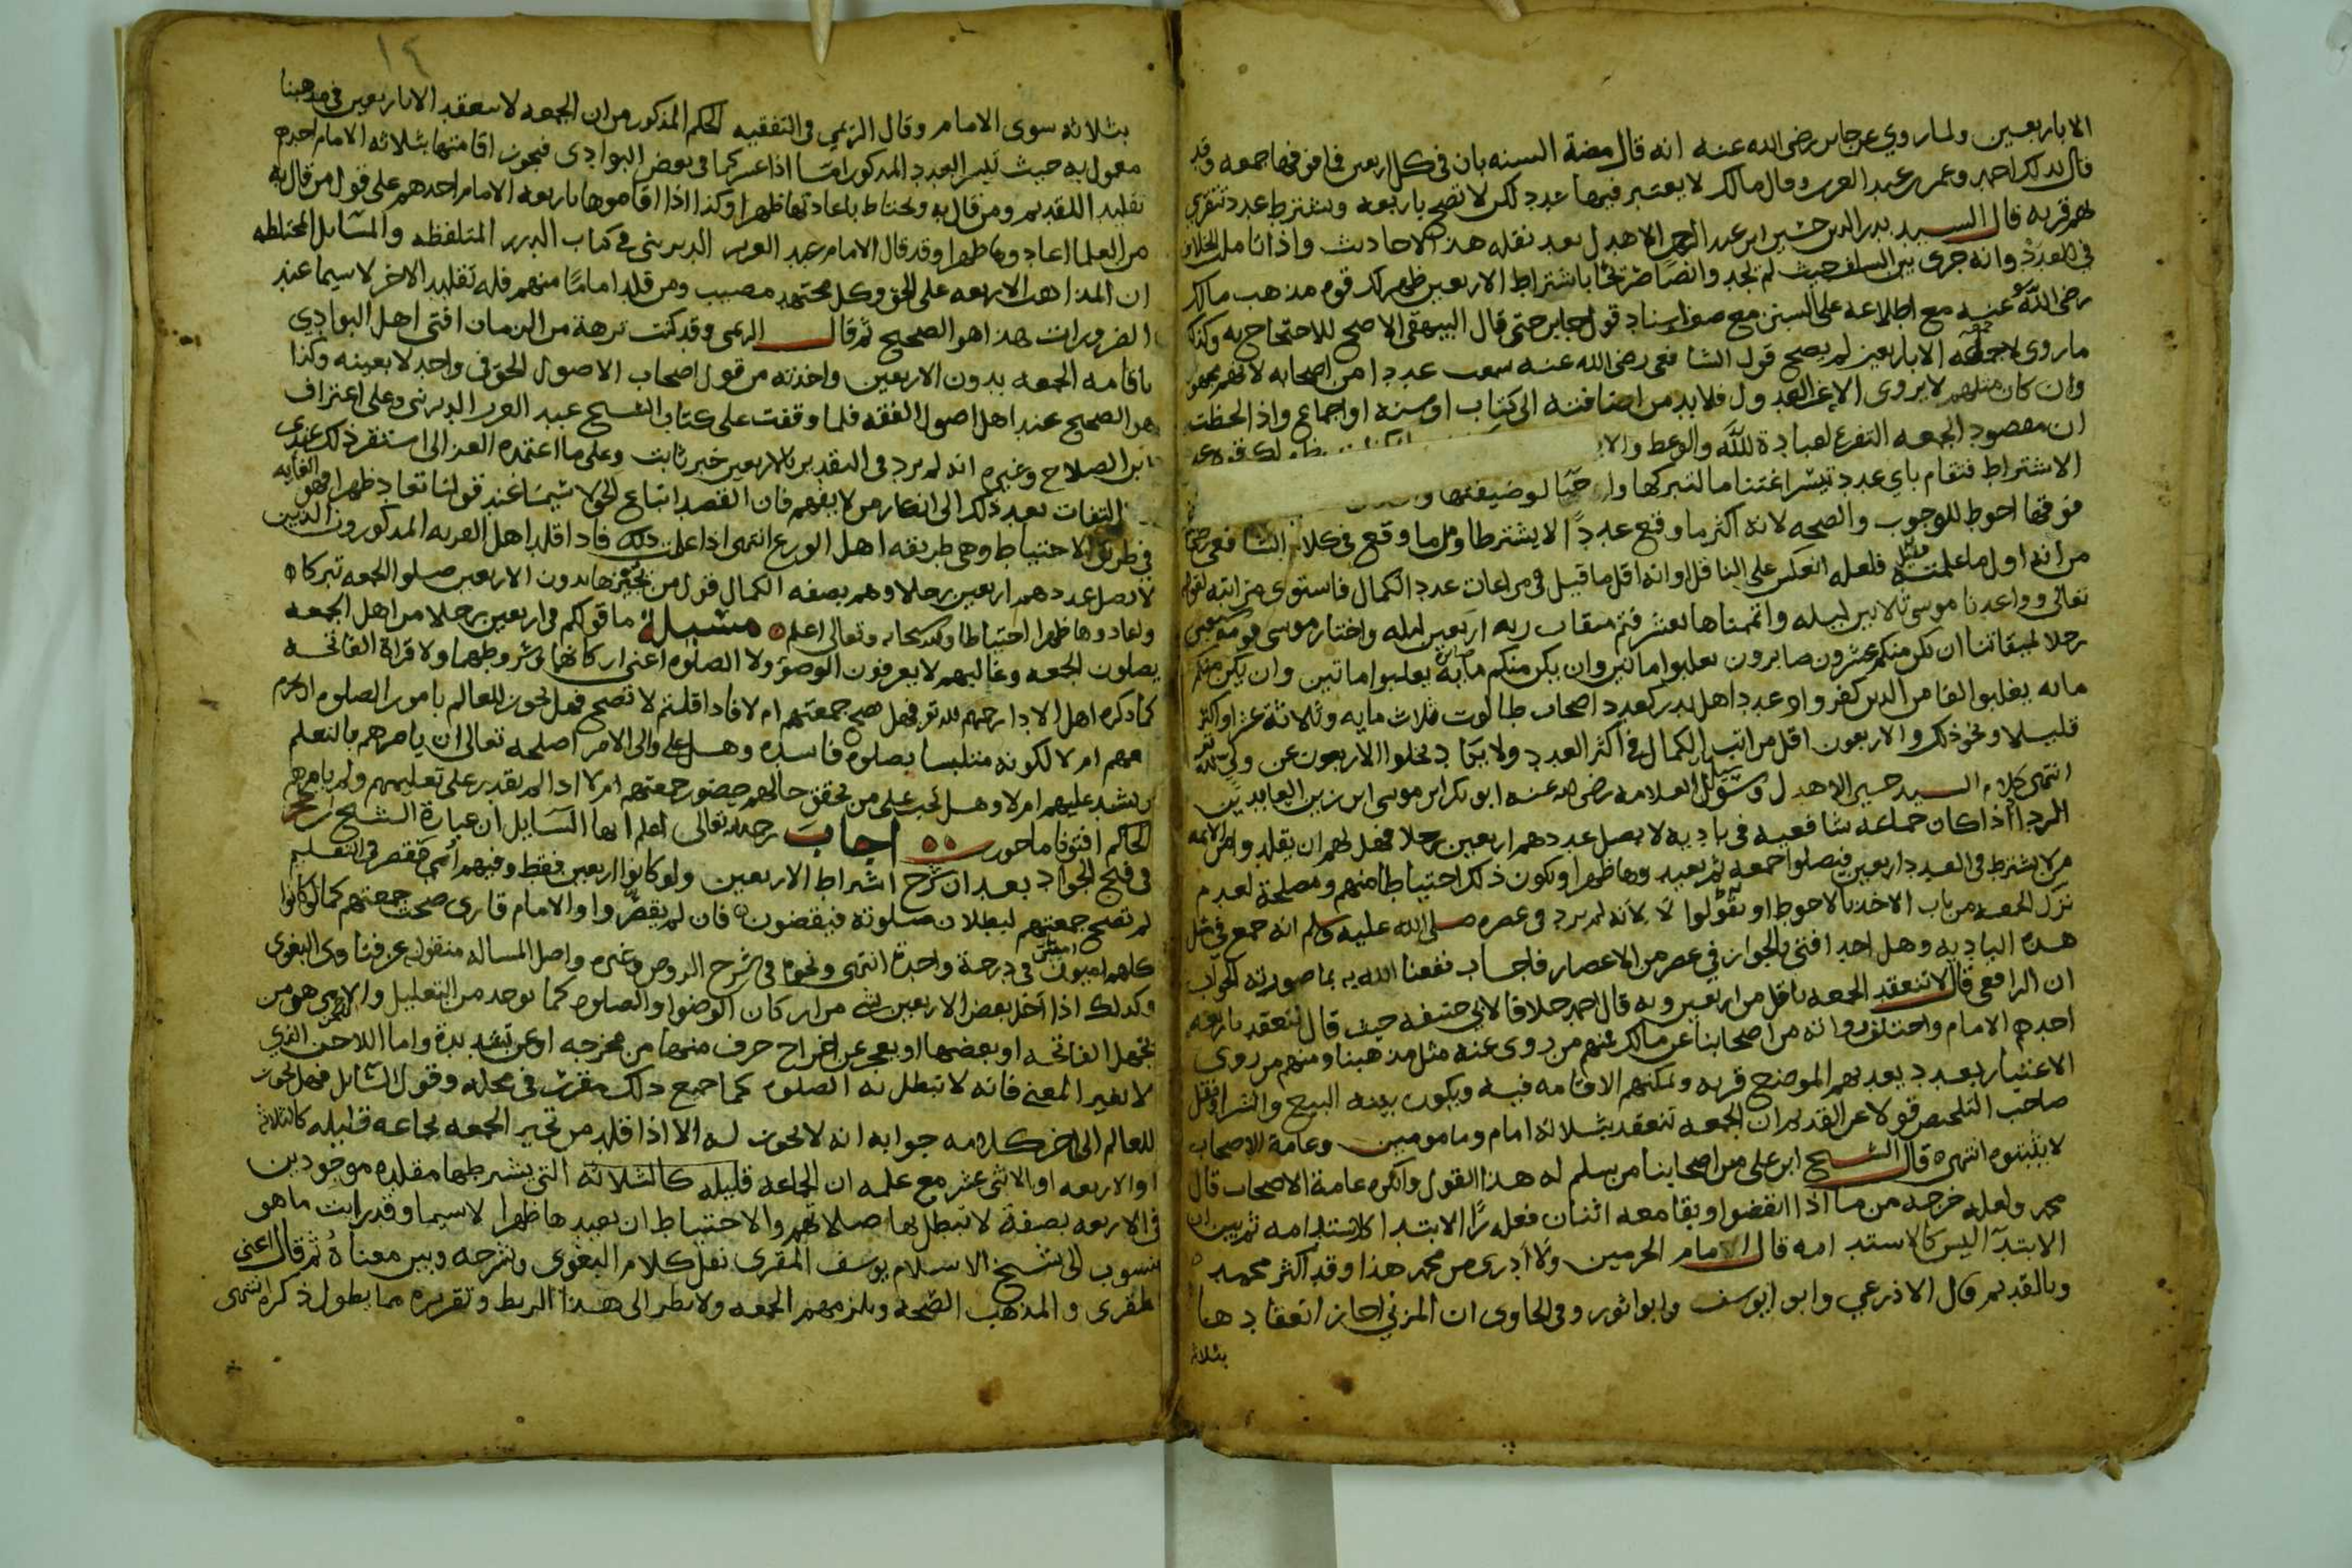 الاباربعين ولما روي عن جابر رضي الله عنه انه قال مضة السنه بان في كل اربعين فما فوقها جمعه وقد
قال بذلك احمد وعمر بن عبد العزيز وقال مالك لا يعتبر فيها عدد لكن لا تصح باربعه ويشترط عدد تتقري
بهم قريه قال السيد بدر الدين حسين ابن عبد الرحمن الاهدل بعد نقله هذه الاحاديث واذا تامل الخلاف
في العدد وانه جرى بين السلف حيث لم نجد وانصا صريحا باشتراط الاربعين ظهر لك قوه مذهب مالك
رضى الله عنه مع اطلاعه على السنن مع اسناد قول جابر حتى قال البيهقي الاصح للاحتجاج به وكذا
ما روى لا جمعه الا باربعين لم يصح قول الشافعي رضى الله عنه سمعت عددا من اصحابه
وان كان مثلهم لا يروى الا عن العدول فلا بد من اضافته الى كتاب او سنه او اجماع واذا لحظت
ان مقصود الجمعه التفرغ لعبادة الله والوعظ
الاشتراط فتقام باي عدد تيسر اغتناما لتبركها لوضيفتها
فوقها احوط للوجوب والصحه لانه اكثر ما وقع عددا لا يشترط اقل ما وقع في كلام الشافعي
من انه اول ما علمت فلعله انعكس على الناقل او انه اقل ما قيل في مراعات عدد الكمال فاستوى مراتبه
تعالى وواعدنا موسى ثلاثين ليله واتممناها بعشر فتم ميقات ربه اربعين ليله واختار موسى قومه سبعين
رجلا لميقاتنا ان يكن منكم عشرون صابرون يغلبوا مائتين وان يكن منكم مايه صابرة يغلبوا مائتين وان يكن منكم
مايه يغلبوا الفا من الذين كفروا وعدد اهل بدر كعدد اصحاب طالوت ثلاث مايه وثلاثة عشر او اكثر
قليلا ونحو ذلك والاربعون اقل مراتب الكمال في اكثر العدد ولا يكاد يخلوا الاربعون عن ولي لله
انتهى كلام السيد حسين الاهدل وسئل العلامه رضى الله عنه ابو بكر ابن موسى ابن زين العابدين
الرداد اذا كان جماعه شافعيه في باديه لا يصل عددهم اربعين رجلا فهل لهم ان يقلدوا
من لا يشترط في العدد اربعين فيصلوا جمعه ثم يعيدوها ظهرا ويكون ذلك احتياطا منهم ومصلحة لعدم
ترك الجمعه من باب الاخذ بالاحوط او تقولوا لا لانه لم يرد في عصره صلى الله عليه وسلم انه جمع في مثل
هذه الباديه وهل احد افتى بالجواز في عصر من الاعصار فاجاب نفعنا الله به بما صورته الجواب
ان الرافعي قال لا تنعقد الجمعه باقل من اربعين وبه قال احمد خلافا لابي حنيفه حيث قال تنعقد باربعه
احدهم الامام واختلف رواته من اصحابنا عن مالك فمنهم من روى عنه مثل مذهبنا ومنهم من روى
الاعتبار بعدد يعد بهم الموضع قريه ويمكنهم الاقامه فيه ويكون بينه البيع والشرا ونقل
صاحب التلخيص قولا عن القديم ان الجمعه تنعقد بثلاثه امام ومامومين وعامة الاصحاب
لا يثبتوه انتهى قال الشيخ ابن علي من اصحابنا من سلم له هذا القول وانكره عامة الاصحاب قال
محمد ولعله خرجه من ما اذا انفضوا وبقا معه اثنان فعله الابتدا كالاستدامه ثم
الابتدآ اليس كالاستدامه قال الامام الحرمين ولا ادرى من محمد هذا وقد اكثر محمد
وبالقديم قال الاذرعي وابو ابوسف وابو اثور وفي الحاوى ان المزني اجاز انعقادها
بثلاثه
١٤
بثلاثه سوى الامام وقال الريمي في التفقيه الحكم المذكور من ان الجمعه لا تنعقد الا باربعين في مذهبنا
معمول به حيث تيسر العدد المذكور امّا اذا عسر كما في بعض البوادى فيجوز اقامتها بثلاثه الامام احدهم
تقليد اللقديم ومن قال به ويحتاط باعادتها ظهرا وكذا اذا اقاموها باربعه الامام احدهم على قول من قال به
من العلما اعادوها ظهرا وقد قال الامام عبد العزيز الديريني في كتاب الدرر الملتقطه والمسائل المختلطه
ان المذاهب الاربعه على الحق وكل مجتهد مصيب ومن قلد اماما منهم فله تقليد الاخر لا سيما عند
الضرورات هذا هو الصحيح ثم قال الريمي وقد كنت برهة من الزمان افتى اهل البوادي
باقامه الجمعه بدون الاربعين واخذته من قول اصحاب الاصول الحق في واحد لا بعينه وكذا
هو الصحيح عند اهل اصول الفقه فلما وقفت على كتاب الشيخ عبد العزيز الديريني وعلى اعتراف
ابن الصلاح وغيره انه لم يرد في التقدير بالاربعين خبر ثابت وعلى ما اعتمده الغزالى استقر ذلك عندى
التفات بعد ذلك الى انكار من لا يفهم فان القصد اتباع الحق لا سيما عند قولنا تعاد ظهرا فهو الغايه
في طريق الاحتياط وهي طريقه اهل الورع انتهى اذا علمت ذلك فاذا قلد اهل القريه المذكورون الذين
لا يصل عددهم اربعين رجلا وهم بصفه الكمال قول من يجيزها بدون الاربعين صلوا الجمعه تبركا
وتعادوها ظهرا احتياطا والله سبحانه وتعالى اعلم مسئلة ما قولكم في اربعين رجلا من اهل الجمعه
يصلون الجمعه وغالبهم لا يعرفون الوضوء ولا الصلوه اعنى اركانها وشروطهما ولا قراة الفاتحه
كما ذكره اهل الادا رحمهم الله فهل تصح جمعتهم ام لا فاذا قلتم لا تصح فهل يجوز للعالم بامور الصلوه ان يحرم
معهم ام لا لكونه متلبسا بصلوه فاسده وهل على والى الامر اصلحه تعالى ان يامرهم بالتعلم
ويشدد عليهم ام لا وهل يجب على من تحقق حالهم حضور جمعتهم ام لا اذا لم يقدر على تعليمهم ولم يامرهم
الحاكم افتونا ماجورين اجاب رحمه الله تعالى اعلم ايها السايل ان عبارة الشيخ ابن حجر
في فتح الجواد بعد ان شرح اشراط الاربعين ولو كانوا اربعين فقط وفيهم أمي قصر في التعلم
لم تصح جمعتهم لبطلان صلوته فينقضون فان لم يقصروا والامام قارى صحت جمعتهم كما لو كانوا
كلهم اميون في درجة واحدة انتهى ونحوه في شرح الروض وغيره واصل المساله منقوله عن فتاوى البغوى
وكذلك اذا اخل بعض الاربعين بشى من اركان الوضوا والصلوه كما يوخذ من التعليل والامي هو من
يجهل الفاتحه او بعضها او يعجز عن اخراج حرف منها من مخرجه او عن تشديده واما اللاحن الذي
لا يغير المعنى فانه لا تبطل به الصلوه كما جميع ذلك مقرر في محله وقول السائل فهل يجوز
للعالم الى اخر كلامه جوابه انه لا يجوز له الا اذا قلد من تجيز الجمعه بجاعه قليله كالثلاثه
او الاربعه او الاثنى عشر مع علمه ان الجماعه قليله كالثلاثه التى يشرطها مقلده موجودين
في الاربعه بصفة لا تبطل بها صلاتهم والاحتياط ان يعيدها ظهرا لا سيما وقد رايت ما هو
منسوب الى شيخ الاسلام يوسف المقرى نقل كلام البغوى وشرحه وبين معناهُ ثم قال اعنى
المقرى والمذهب الصحه ويلزمهم الجمعه ولا ينظر الى هذا الربط وتقريره مما يطول ذكره انتهى